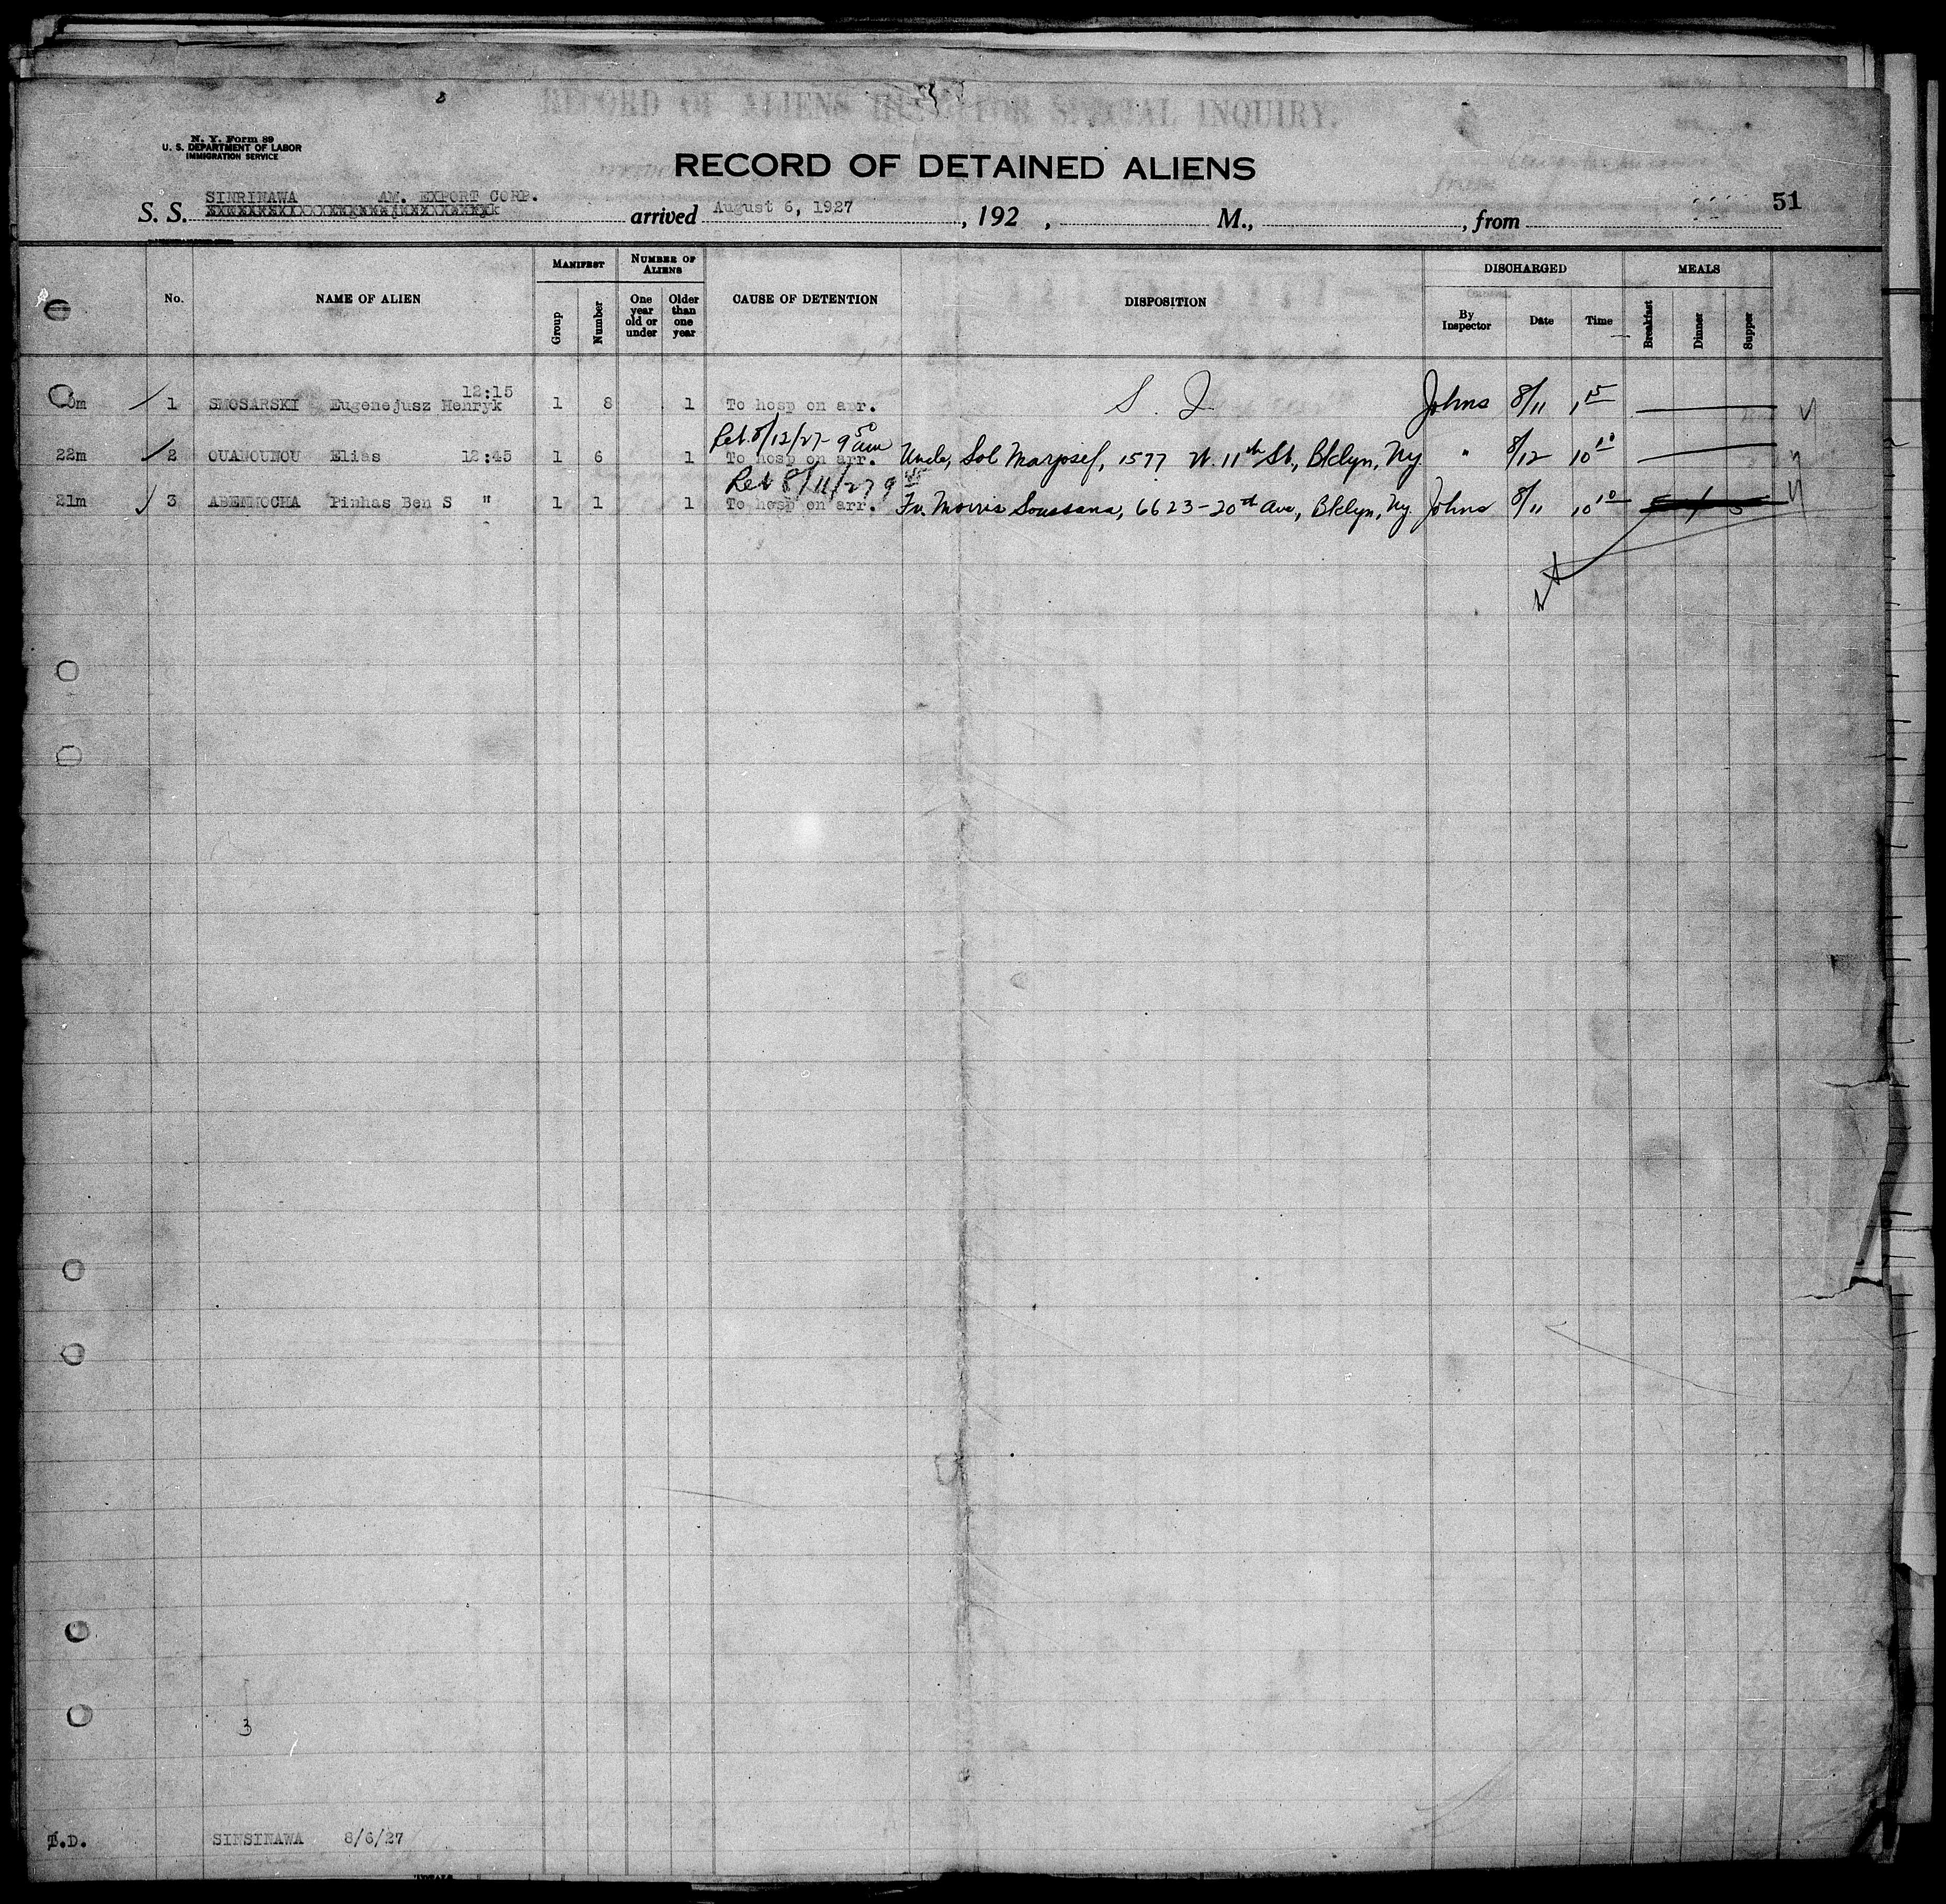 RECORD OF ALIENS HELD FOR SPECIAL INQUIRY.
N. Y. Form 89
U. S. DEPARTMENT OF LABOR
IMMIGRATION SERVICE
RECORD OF DETAINED ALIENS
51
SINRINAWA AM. EXPORT CORP.
S. S. arrived August 6, 1927, 192 , M., , from
MANIFEST NUMBER OF ALIENS DISCHARGED MEALS
No. NAME OF ALIEN Group Number One year old or under Older than one year CAUSE OF DETENTION DISPOSITION By Inspector Date Time Breakfast Dinner Supper
12:15
1 SMOSARSKI Eugenejusz Henryk 1 8 1 To hosp on arr. S. I. Johns 8/11 1 15
Ret. 8/12/27 - 9 50 am
22m 2 OUANOUNOU Elias 12:45 1 6 1 To hosp on arr. Uncle, Sol Marjosef, 1577 W. 11th St., Bklyn, Ny. " 8/12 10 10
Ret 8/11/27 9 45
21m 3 ABENMOCHA Pinhas Ben S " 1 1 1 To hosp on arr. Fr. Morris Soussana, 6623-20th Ave, Bklyn, Ny. Johns 8/11 10 10
3
T.D. SINSINAWA 8/6/27